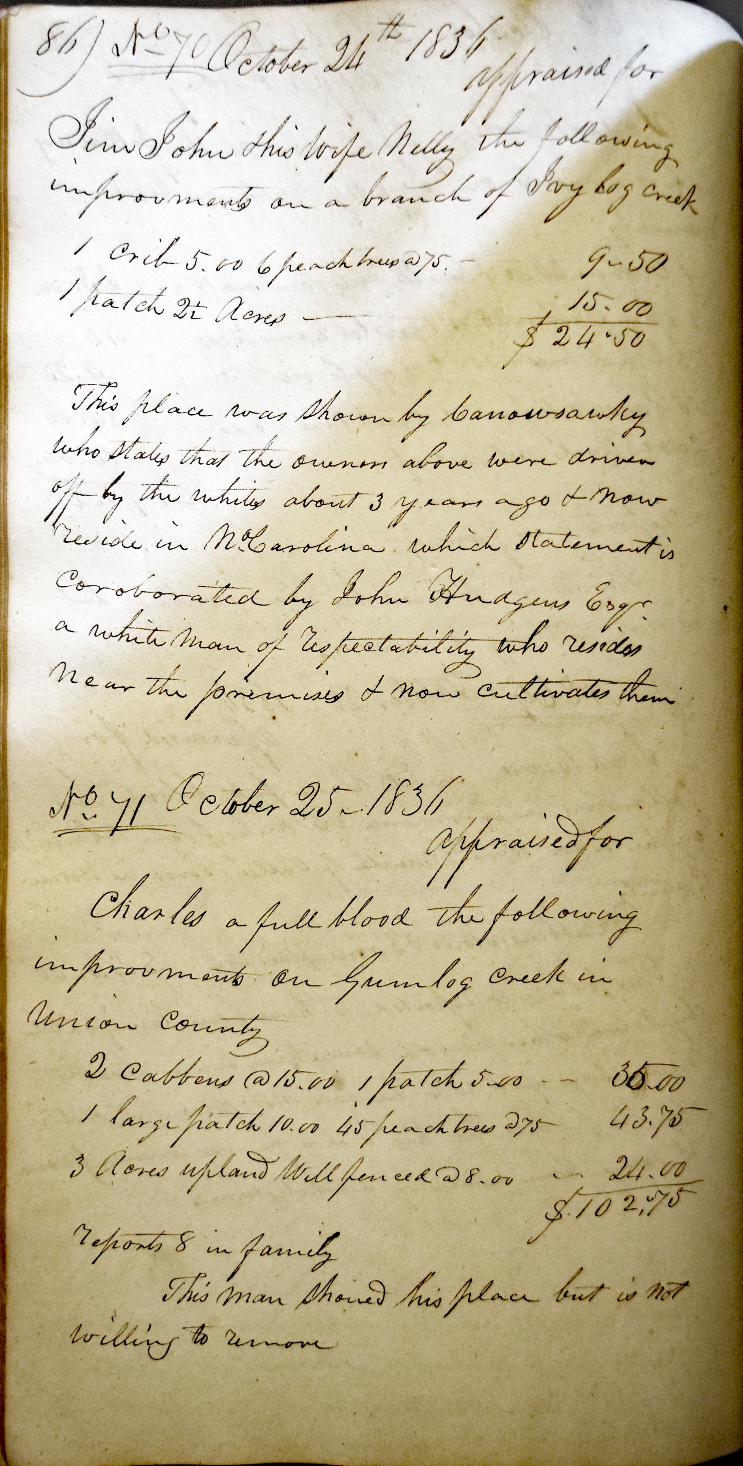 86) No 70 October 24th 1836
appraised for
Jim John & his wife Nelly the following
improvments on a branch of Ivy log creek
1 crib 5.00 6 peach trees @ 75. — 9-50
1 patch 2½ Acres — 15.00
$ 24.50
This place was shown by Canowsawky
who states that the owners above were driven
off by the whites about 3 years ago & now
reside in No Carolina which statement is
coroborated by John Hudgens Esqr.
a white man of respectability who resides
near the premises & now cultivates them
No 71 October 25 - 1836
appraised for
Charles a full blood the following
improvments on Gum log creek in
Union County
2 Cabbens @ 15.00 1 patch 5.00 -- 35.00
1 large patch 10.00 45 peach trees @ 75 43.75
3 Acres upland Well fenced @ 8.00 -- 24.00
$.102.75
reports 8 in family
This man shoued his place but is not
willing to remove